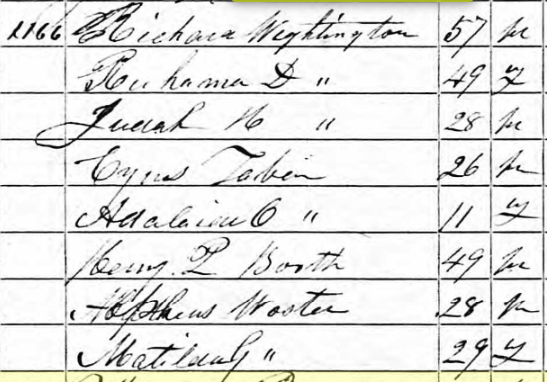 1166 Richard Weightington 57 m
Ruhama D " 49 f
Judah H " 28 m
Cyrus Taber 26 m
Adalaide C " 11 f
Henry P Booth 49 m
Alpheus Wooster 28 m
Matilda G " 29 f